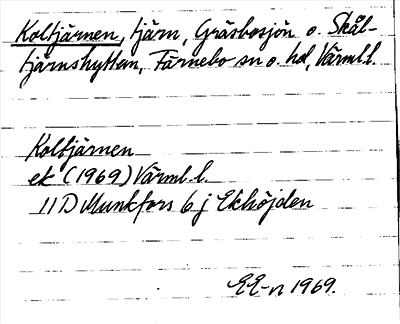 Koltjärnen, tjärn, Gräsbosjön o. Skål-
tjärnshyttan, Färnebo sn o. hd, Värml. l.
Koltjärnen
ek (1969) Värml. l.
11D Munkfors 6j Ekhöjden
EE-n 1969.